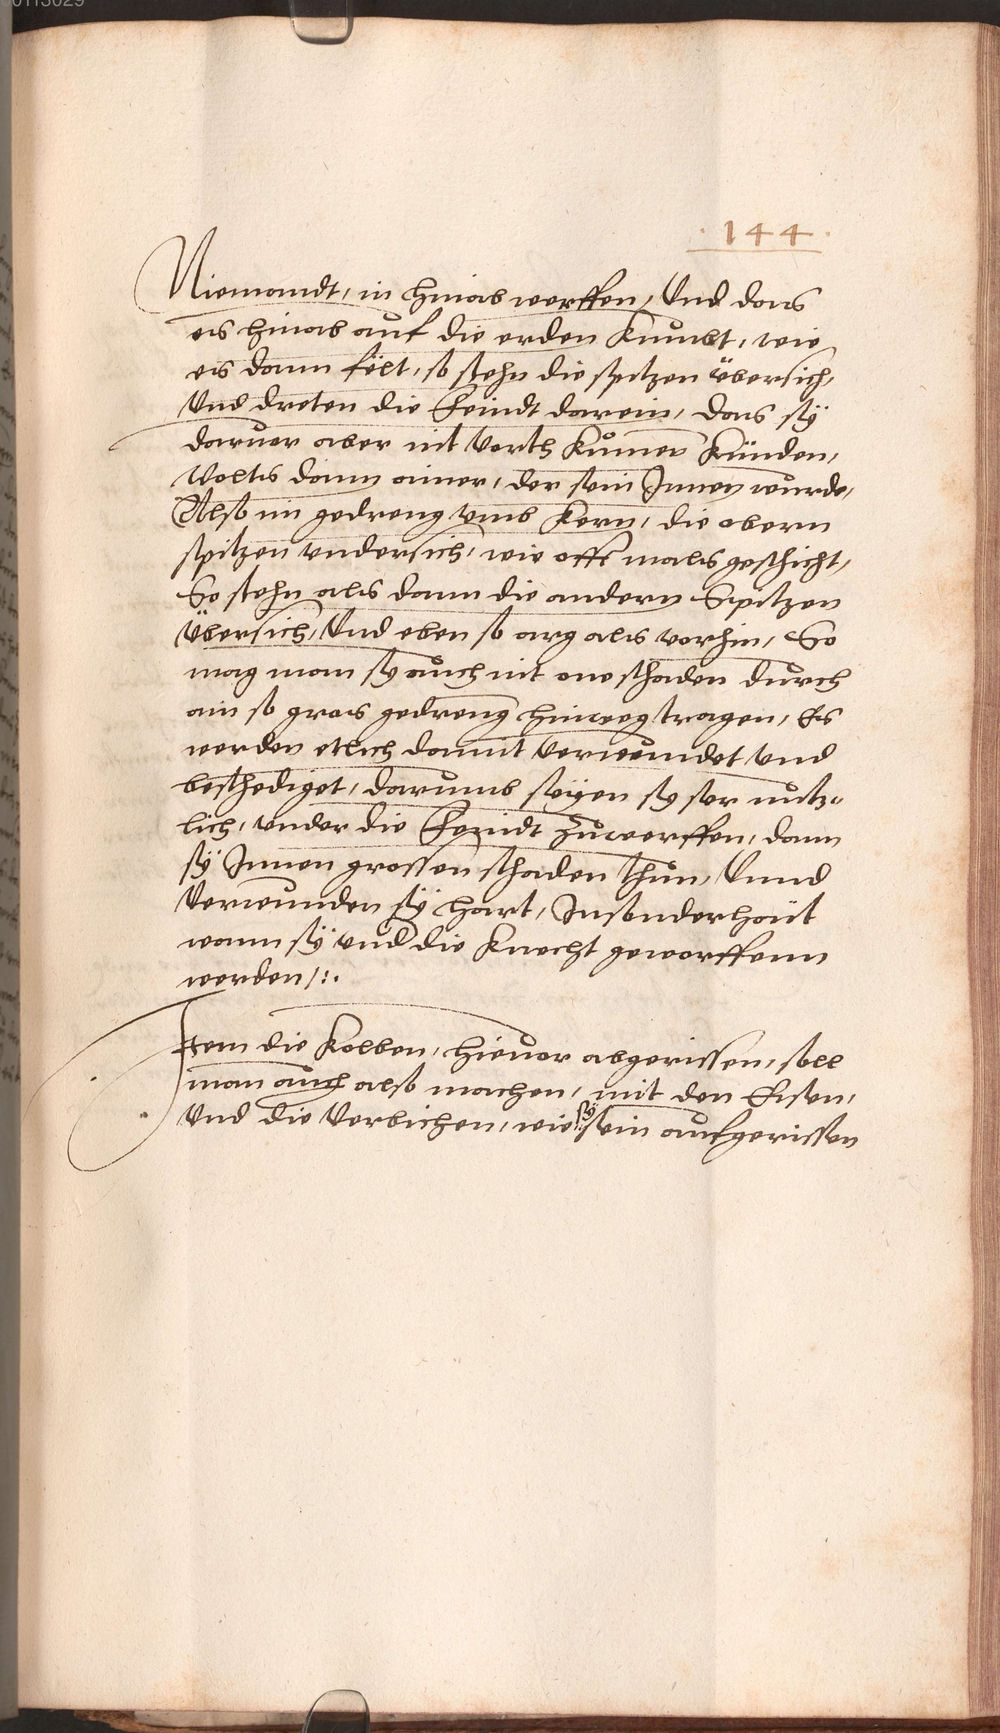 ·144·
Niemandt, in hinab werffen, Und dans
es hinab auf die erden kumbt, wie
es dann felt, so stehn die spitzen übersich,
Und dreten die Feindt darein, dans sÿ
daruor aber nit vorth kumen künden,
Wolts dann ainer, der sein Innen wurde,
Also im gedreng vmb kern, die obern
spitzen undersich, wie offt mals geschicht,
So stehn als dann die andern Spitzen
Übersich, Und eben so arg als vorhin, So
mag man sy auch nit one schaden durch
ain so gros gedreng hinweg tragen, Es
werden etlich damit verwundet und
beschediget, darumb seyen sy ser nutz-
lich, under die Feindt zuwerffen, dann
sÿ Innen grossen schaden thun, Unnd
Verwunden sÿ hart, Insonderhait
wann sÿ und die Knecht geworffenn
werden /:.
Item die Kolben, hieuor abgerissen, soll
man auch also machen, mit den Eisen,
Und die Verbichen, wie sÿ sein aufgerissen